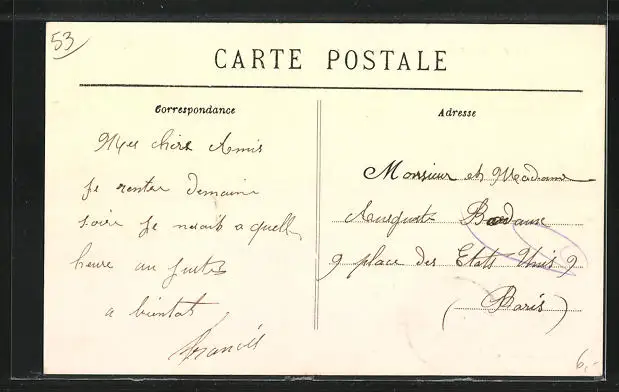 53
CARTE POSTALE
Correspondance
Adresse
Mes chers Amis
Je rentre demain
soir je sait a quell
heure au juste
a bientot
Francis
Monsieur et Madame
Auguste
9 place des Etats Unis 9
(Paris)
6,-